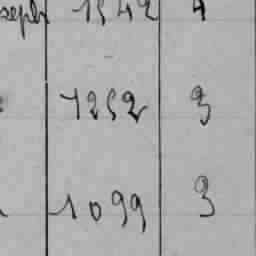 seph 1542 4
1252 3
1099 3